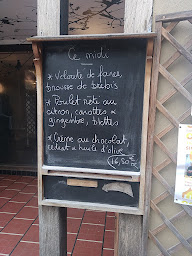 Ce midi
* Velouté de fanes,
brousse de brebis
* Poulet rôti au
citron, carottes &
gingembre, blettes
* Crème au chocolat,
cédrat & huile d'olive
16,50